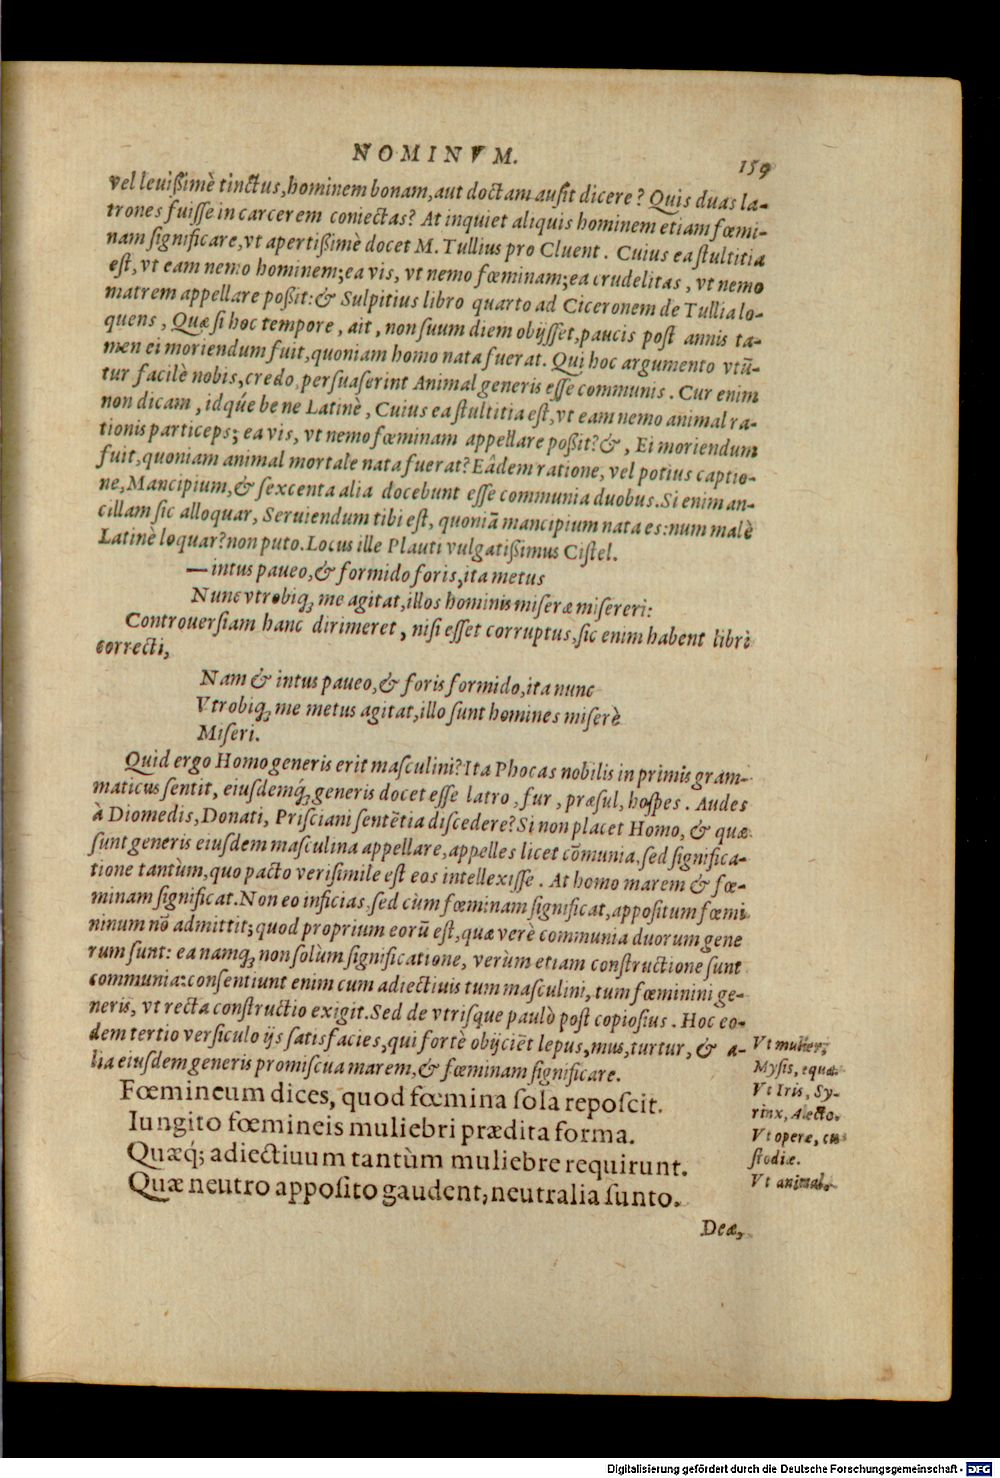 NOMINVM. 159
vel leuißimè tinctus, hominem bonam, aut doctam ausit dicere? Quis duas la-
trones fuisse in carcerem coniectas? At inquiet aliquis hominem etiam fœmi-
nam significare, vt apertißimè docet M. Tullius pro Cluent. Cuius ea stultitia
est, vt eam nemo hominem; ea vis, vt nemo fœminam; ea crudelitas, vt nemo
matrem appellare poßit: & Sulpitius libro quarto ad Ciceronem de Tullia lo-
quens, Quæ si hoc tempore, ait, non suum diem obijsset, paucis post annis ta-
men ei moriendum fuit, quoniam homo nata fuerat. Qui hoc argumento vtũ-
tur facilè nobis, credo, persuaserint Animal generis esse communis. Cur enim
non dicam, idq́ue bene Latinè, Cuius ea stultitia est, vt eam nemo animal ra-
tionis particeps; ea vis, vt nemo fœminam appellare poßit? &, Ei moriendum
fuit, quoniam animal mortale nata fuerat? Eâdem ratione, vel potius captio-
ne, Mancipium, & sexcenta alia docebunt esse communia duobus. Si enim an-
cillam sic alloquar, Seruiendum tibi est, quoniã mancipium nata es: num malè
Latinè loquar? non puto. Locus ille Plauti vulgatißimus Cistel.
— intus paueo, & formido foris, ita metus
Nunc vtrobiq; me agitat, illos hominis miseræ misereri:
Controuersiam hanc dirimeret, nisi esset corruptus, sic enim habent libri
correcti,
Nam & intus paueo, & foris formido, ita nunc
Vtrobiq; me metus agitat, illo sunt homines miserè
Miseri.
Quid ergo Homo generis erit masculini? Ita Phocas nobilis in primis gram-
maticus sentit, eiusdemq́; generis docet esse latro, fur, præsul, hospes. Audes
à Diomedis, Donati, Prisciani sentẽtia discedere? Si non placet Homo, & quæ
sunt generis eiusdem masculina appellare, appelles licet cõmunia, sed significa-
tione tantùm, quo pacto verisimile est eos intellexisse. At homo marem & fœ-
minam significat. Non eo inficias, sed cùm fœminam significat, appositum fœmi
ninum nõ admittit; quod proprium eorũ est, quæ verè communia duorum gene
rum sunt: ea namq; non solùm significatione, verùm etiam constructione sunt
communia: consentiunt enim cum adiectiuis tum masculini, tum fœminini ge-
neris, vt recta constructio exigit. Sed de vtrisque paulò post copiosius. Hoc eo-
dem tertio versiculo ijs satisfacies, qui fortè obijciẽt lepus, mus, turtur, & a-
lia eiusdem generis promiscua marem, & fœminam significare.
Fœmineum dices, quod fœmina sola reposcit.
Iungito fœmineis muliebri prædita forma.
Quæq́; adiectiuum tantùm muliebre requirunt.
Quæ neutro apposito gaudent, neutralia sunto.
Vt mulier,
Mysis, equa.
Vt Iris, Sy-
rinx, Alecto.
Vt operæ, cu
stodiæ.
Vt animal.
Deæ,
Digitalisierung gefördert durch die Deutsche Forschungsgemeinschaft - DFG